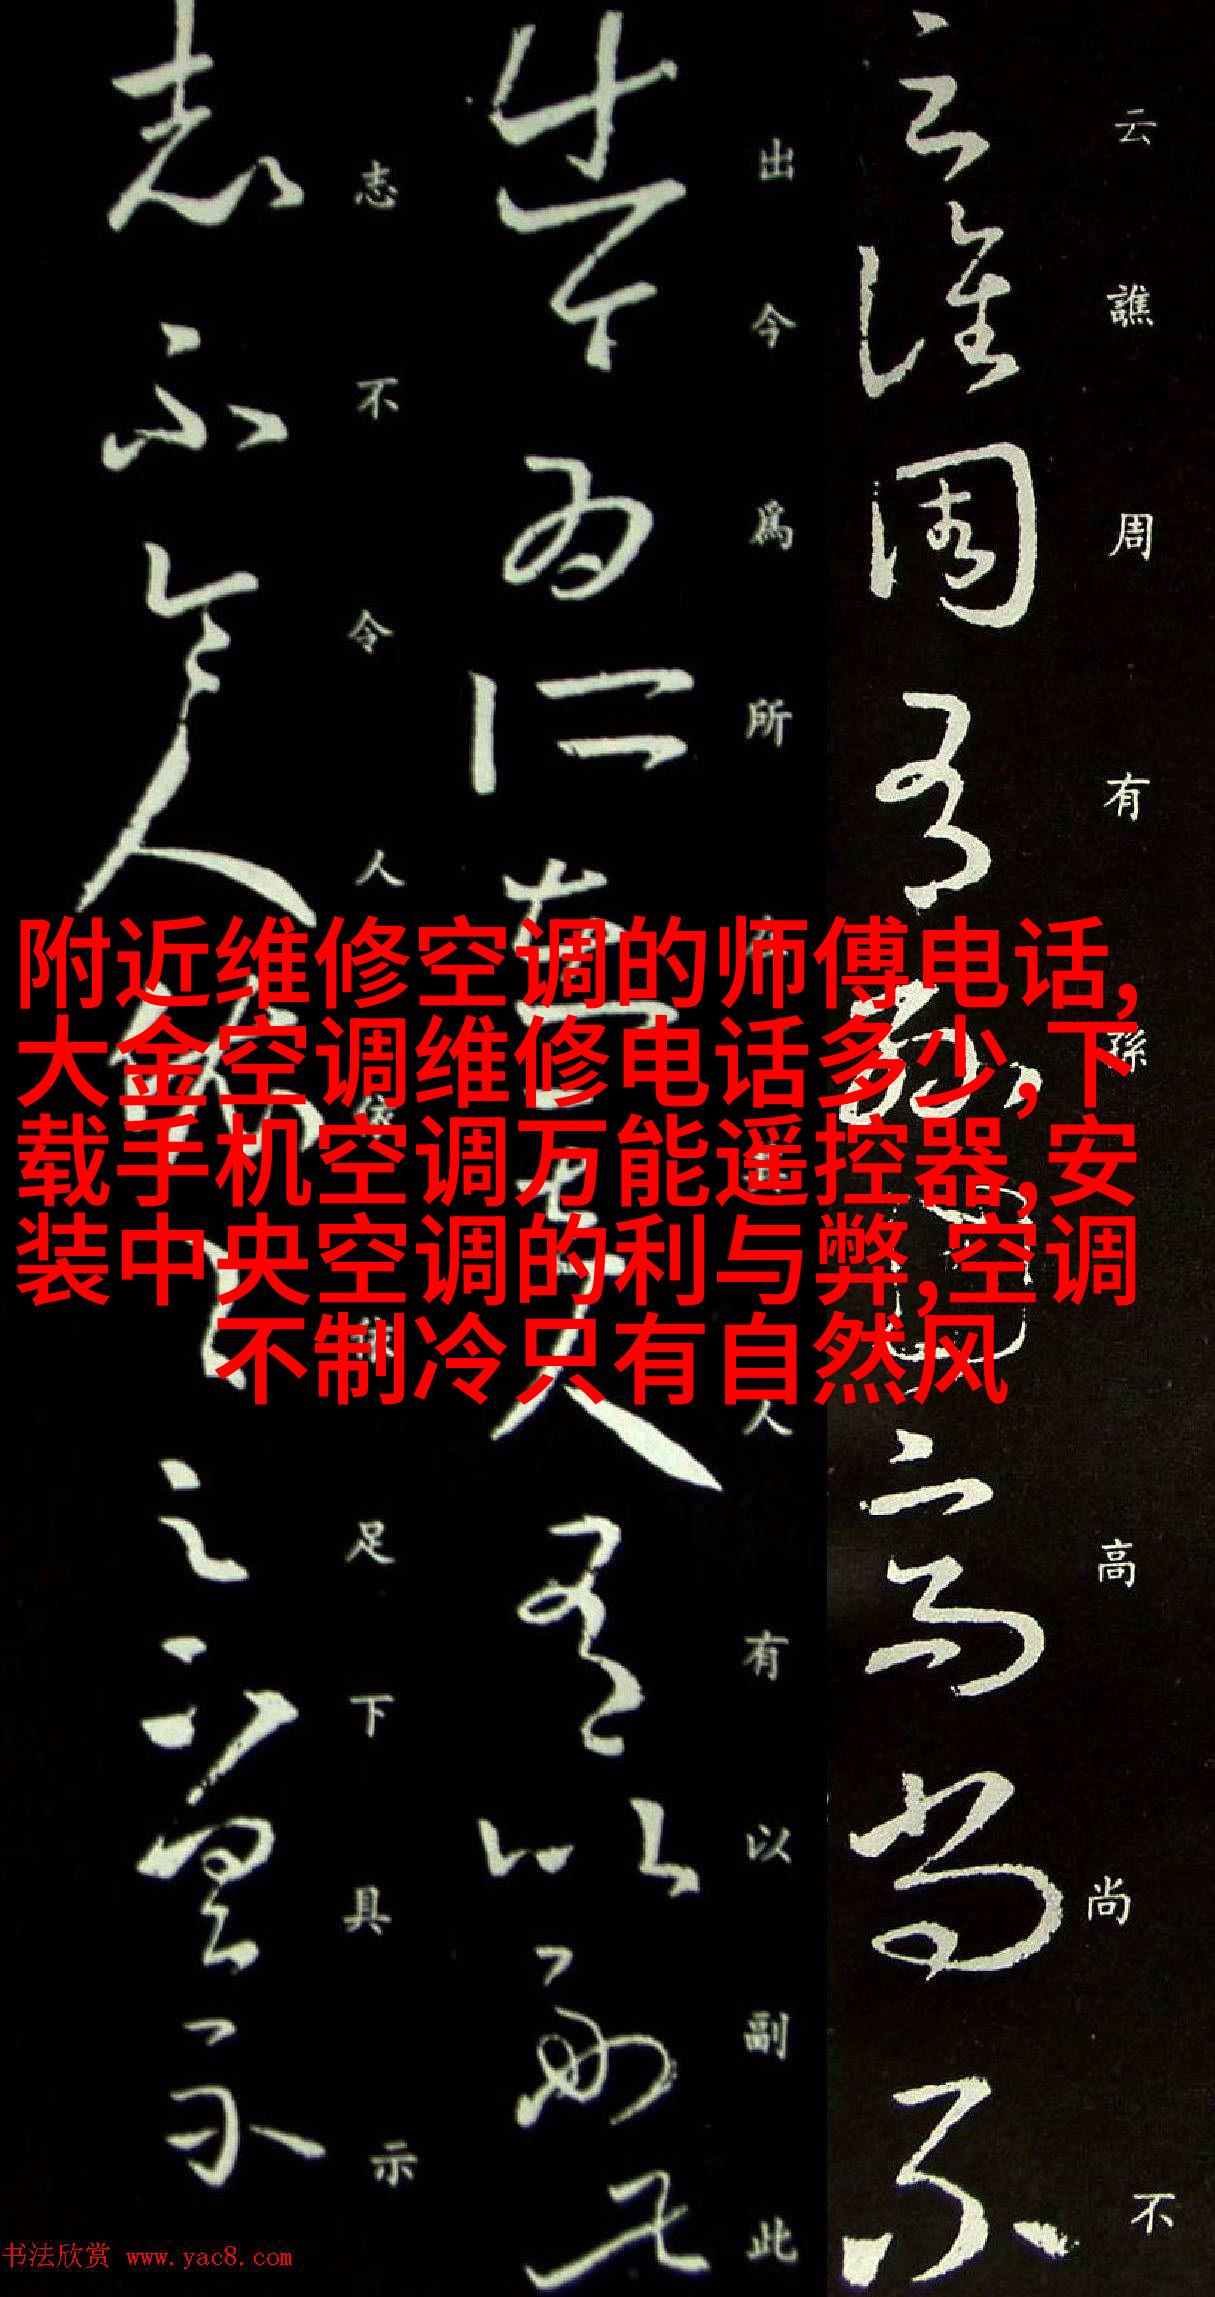 云譙周有孫高尚不
出今為所在其人有以副此
志不令人依依足下具示
附近维修空调的师傅电话,
大金空调维修电话多少,下
载手机空调万能遥控器,安
装中央空调的利与弊,空调
不制冷只有自然风
书法欣赏 www.yac8.com